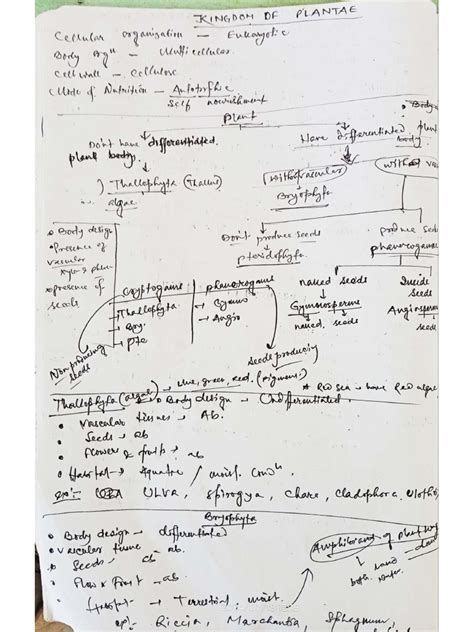 KINGDOM OF PLANTAE
Cellular organization - Eukaryotic
Body Orgn - Multicellular
Cell wall - cellulose
Mode of Nutrition - Autotrophic
Self nourishment
Plant
Don't have differentiated
plant body
Have differentiated plant
body
Thallophyta (Thallus)
algae
Without vascular
Bryophyta
with
Body design
Presence of
vascular
presence of
seeds
Don't produce seeds
pteridophyta
produce seed
phanerogams
Cryptogams
phanerogams
naked seeds
Inside
seeds
Thallophyta
Bry.
Pte
Gymno
Angio
Gymnosperms
naked seeds
Angiosperm
seeds
Non producing
seeds
Seed producing
Thallophyta (algae) → blue, green, red. (pigments)
Red sea - have Red algae
Body design - Undifferentiated
Vascular tissues - Ab.
Seeds - ab
Flowers & fruits - ab
Habitat - Aquatic / moist.
ULVA, Spirogyra, Chara, Cladophora, Ulothrix
Bryophyta
Body design - differentiated
Vascular tissue - ab.
Seeds - ab.
Flow & Fruit - ab
Habitat - Terrestrial, moist.
Amphibians of plant
land
both water
Riccia, Marchantia, Sphagnum,